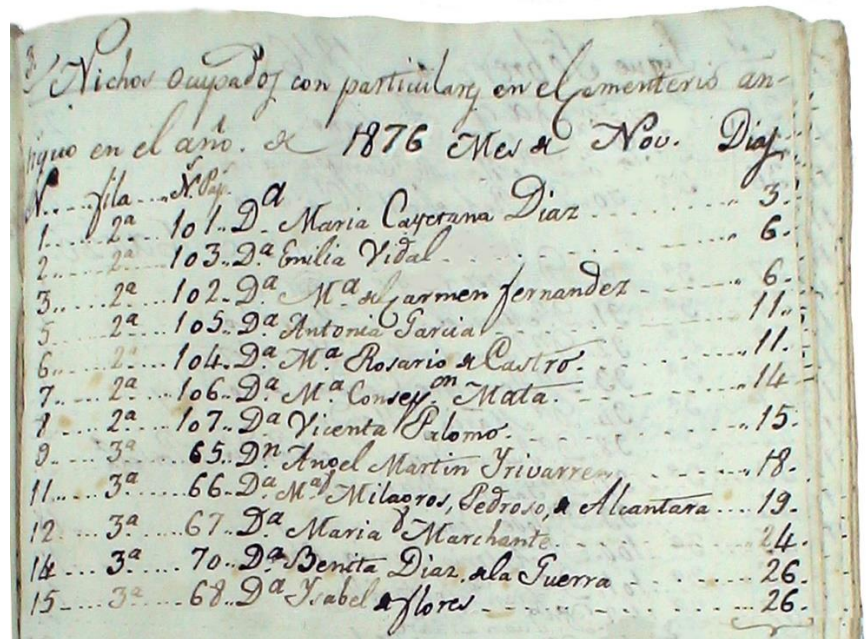 Nichos Ocupados con particulares en el Cementerio an-
tiguo en el año. de 1876 Mes de Nov. Dias
N. fila N. Paj.
1. 2ª 101. Dª Maria Cayetana Diaz 3.
2. 2ª 103. Dª Emilia Vidal 6.
3. 2ª 102. Dª Mª del Carmen fernandez 6.
5 2ª 105. Dª Antonia Garcia 11.
6. 2ª 104. Dª Mª Rosario de Castro. 11.
7. 2ª 106. Dª Mª Consepon Mata. 14
8 2ª 107. Dª Vicenta Palomo. 15.
9 3ª 65. Dn Angel Martin Yrivarren 18.
11. 3ª 66. Dª Mª Milagros, Pedroso, de Alcantara 19.
12 3ª 67. Dª Maria Marchante 24.
14 3ª 70. Dª Benita Diaz, de la Guerra 26.
15 3ª 68. Dª Ysabel de flores 26.